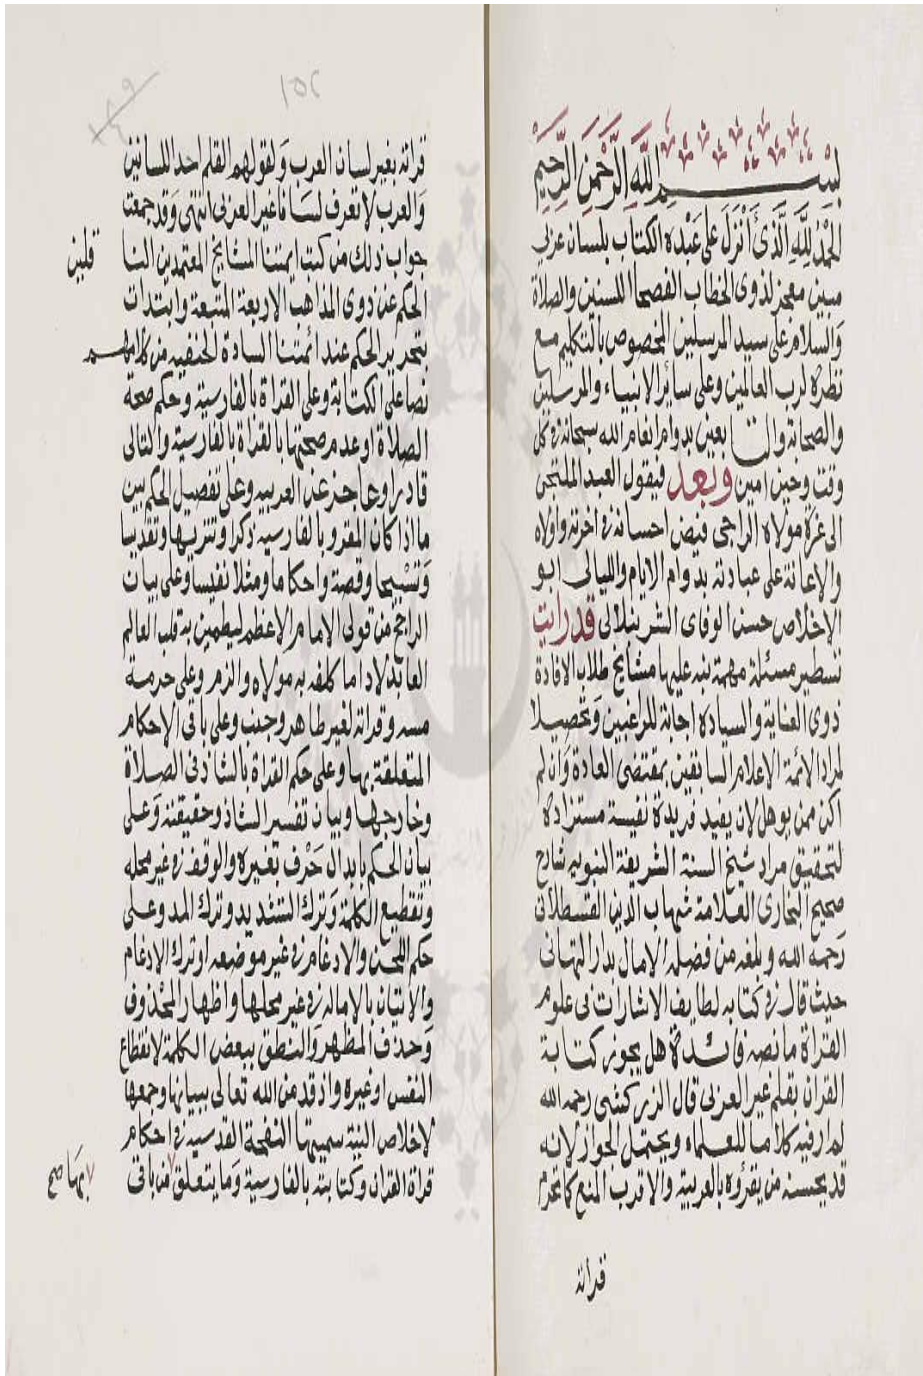 بسم الله الرحمن الرحيم
الحمد لله الذي أنزل على عبده الكتاب بلسان عربي
مبين معجز لذوي الخطاب الفصحا اللسنين والصلاة
والسلام على سيد المرسلين المخصوص بالتكليم مع
نظره لرب العالمين وعلى سائر الانبياء والمرسلين
والصحابة والتابعين بدوام انعام الله سبحانه في كل
وقت وحين امين وبعد فيقول العبد الملتجي
الى عزة مولاه الراجي فيض احسانه في اخرته واولاه
والاعانة على عبادته بدوام الايام والليالي ابو
الاخلاص حسن الوفاي الشرنبلالي قد رايت
تسطير مسئلة مهمة نبه عليها مشايخ طلاب الافادة
ذوي العناية والسياده اجابة للراغبين وتحصيلا
لمراد الائمة الاعلام السابقين بمقتضى العادة وان لم
اكن ممن يوهل لان يفيد فريدة نفيسة مستزادة
لتحقيق مراد شيخ السنة الشريفة النبويه شارح
صحيح البخاري العلامة شهاب الدين القسطلاني
رحمه الله وبلغه من فضله الامال بدار التهاني
حيث قال في كتابه لطايف الاشارات في علوم
القراة ما نصه فائدة هل يجوز كتابة
القران بقلم غير العربي قال الزركشي رحمه الله
لم ار فيه كلاما للعلماء ويحتمل الجواز لانه
قد يحسنه من يقرؤه بالعربية والاقرب المنع كما تحرم
قراته
١٥٢
قراته بغير لسان العرب ولقولهم القلم احد اللسانين
والعرب لا تعرف لسانا غير العربي انتهى وقد جمعت
جواب ذلك من كتب ايمتنا المشايخ المعتمدين النا
قلين
الحكم عن ذوي المذاهب الاربعة المتبعة وابتدات
بتحرير الحكم عند ائمتنا السادة الحنفيه من كلامهم
نصا على الكتابة وعلى القراة بالفارسية وحكم صحة
الصلاة او عدم صحتها بالقراة بالفارسية والتالي
قادر او عاجز عن العربيه وعلى تفصيل الحكم بين
ما اذا كان المقرو بالفارسيه ذكرا وتنزيها وتقديسا
وتسبيحا وقصة واحكاما ومثلا نفيسا وعلى بيان
الراجح من قولي الامام الاعظم ليطمين به قلب العالم
العابد لاداما كلفه به مولاه والزم وعلى حرمة
مسه وقراته لغير طاهر وجنب وعلى باقي الاحكام
المتعلقة بها وعلى حكم القراة بالشاذ في الصلاة
وخارجها وبيان تفسير الشاذ وحقيقته وعلى
بيان الحكم بابدال حرف بغيره والوقف في غير محله
وتقطيع الكلمة وترك التشديد وترك المد وعلى
حكم اللحن والادغام في غير موضعه او ترك الادغام
والاتيان بالاماله في غير محلها واظهار المحذوف
وحذف المظهر والنطق ببعض الكلمة لانقطاع
النفس او غيره واذ قد من الله تعالى ببيانها وجمعها
لاخلاص النية سميتها النفحة القدسيه في احكام
قراة القران وكتابته بالفارسية وما يتعلق من باقي
بها صح